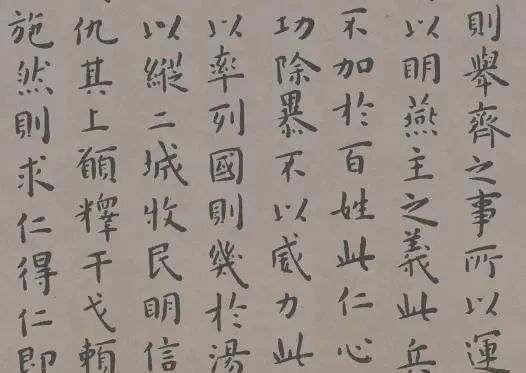 則舉齊之事所以運
以明燕主之義此兵
不加於百姓此仁心
功除暴不以威力此
以率列國則幾於湯
以縱二城收民明信
仇其上願釋干戈賴
施然則求仁得仁即